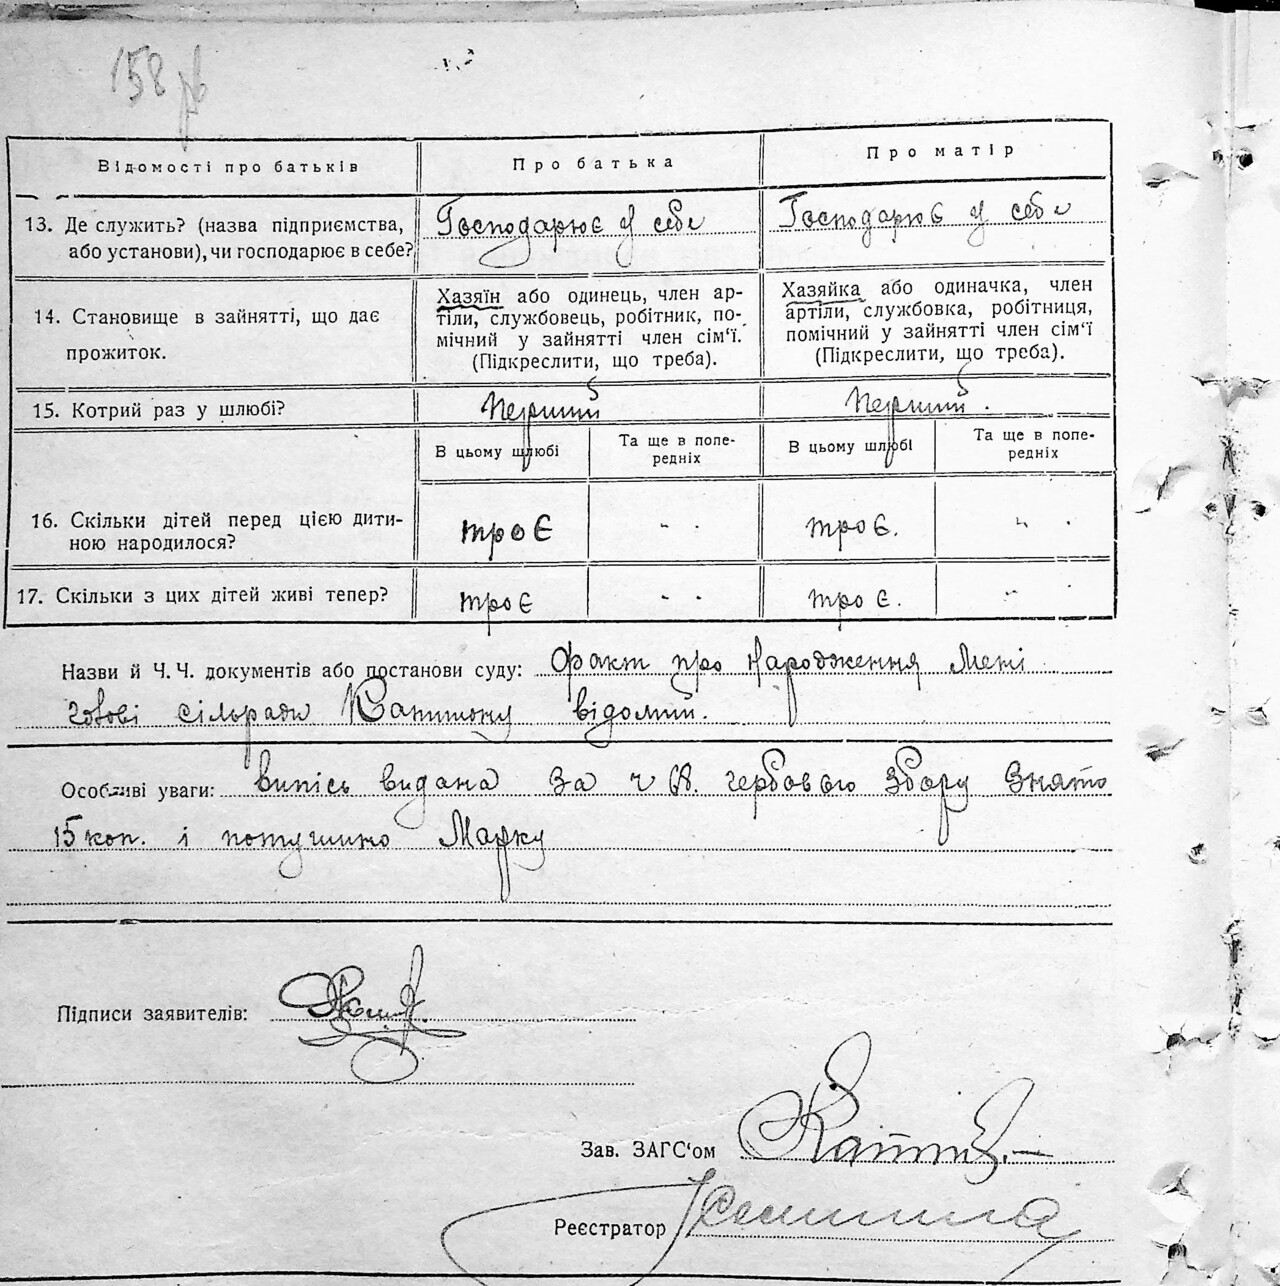 158 рв
Відомості про батьків
Про батька
Про матір
13. Де служить? (назва підприємства,
або установи), чи господарює в себе?
Господарює у себе
Господарює у себе
14. Становище в зайнятті, що дає
прожиток.
Хазяїн або одинець, член ар-
тіли, службовець, робітник, по-
мічний у зайнятті член сім‘ї.
(Підкреслити, що треба).
Хазяйка або одиначка, член
артіли, службовка, робітниця,
помічний у зайнятті член сім‘ї
(Підкреслити, що треба).
15. Котрий раз у шлюбі?
Перший
Перший.
В цьому шлюбі
Та ще в попе-
редніх
В цьому шлюбі
Та ще в попе-
редніх
16. Скільки дітей перед цією дити-
ною народилося?
троє
троє.
17. Скільки з цих дітей живі тепер?
троє
троє.
Назви й Ч. Ч. документів або постанови суду: Факт про Народження Мені
Голові сільради відомий.
Особливі уваги: випись видана за ч 68. гербового збору Знято
15 коп. і потушино Марку
Підписи заявителів:
Зав. ЗАГС‘ом
Реєстратор